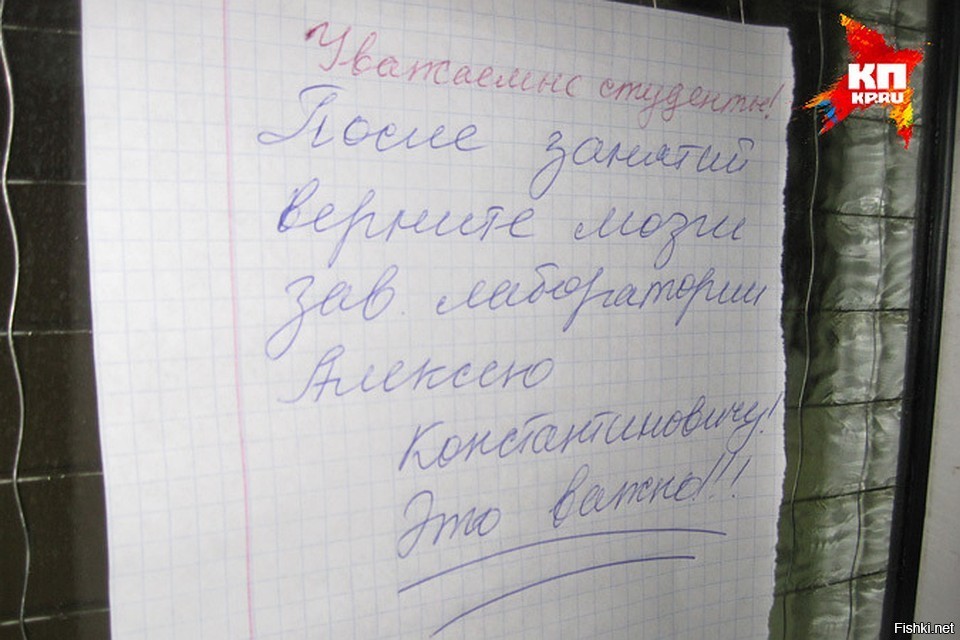 Уважаемые студенты!
После занятий
верните мозги
зав. лаборатории
Алексею
Константиновичу!
Это важно!!!
КП
KP.RU
Fishki.net